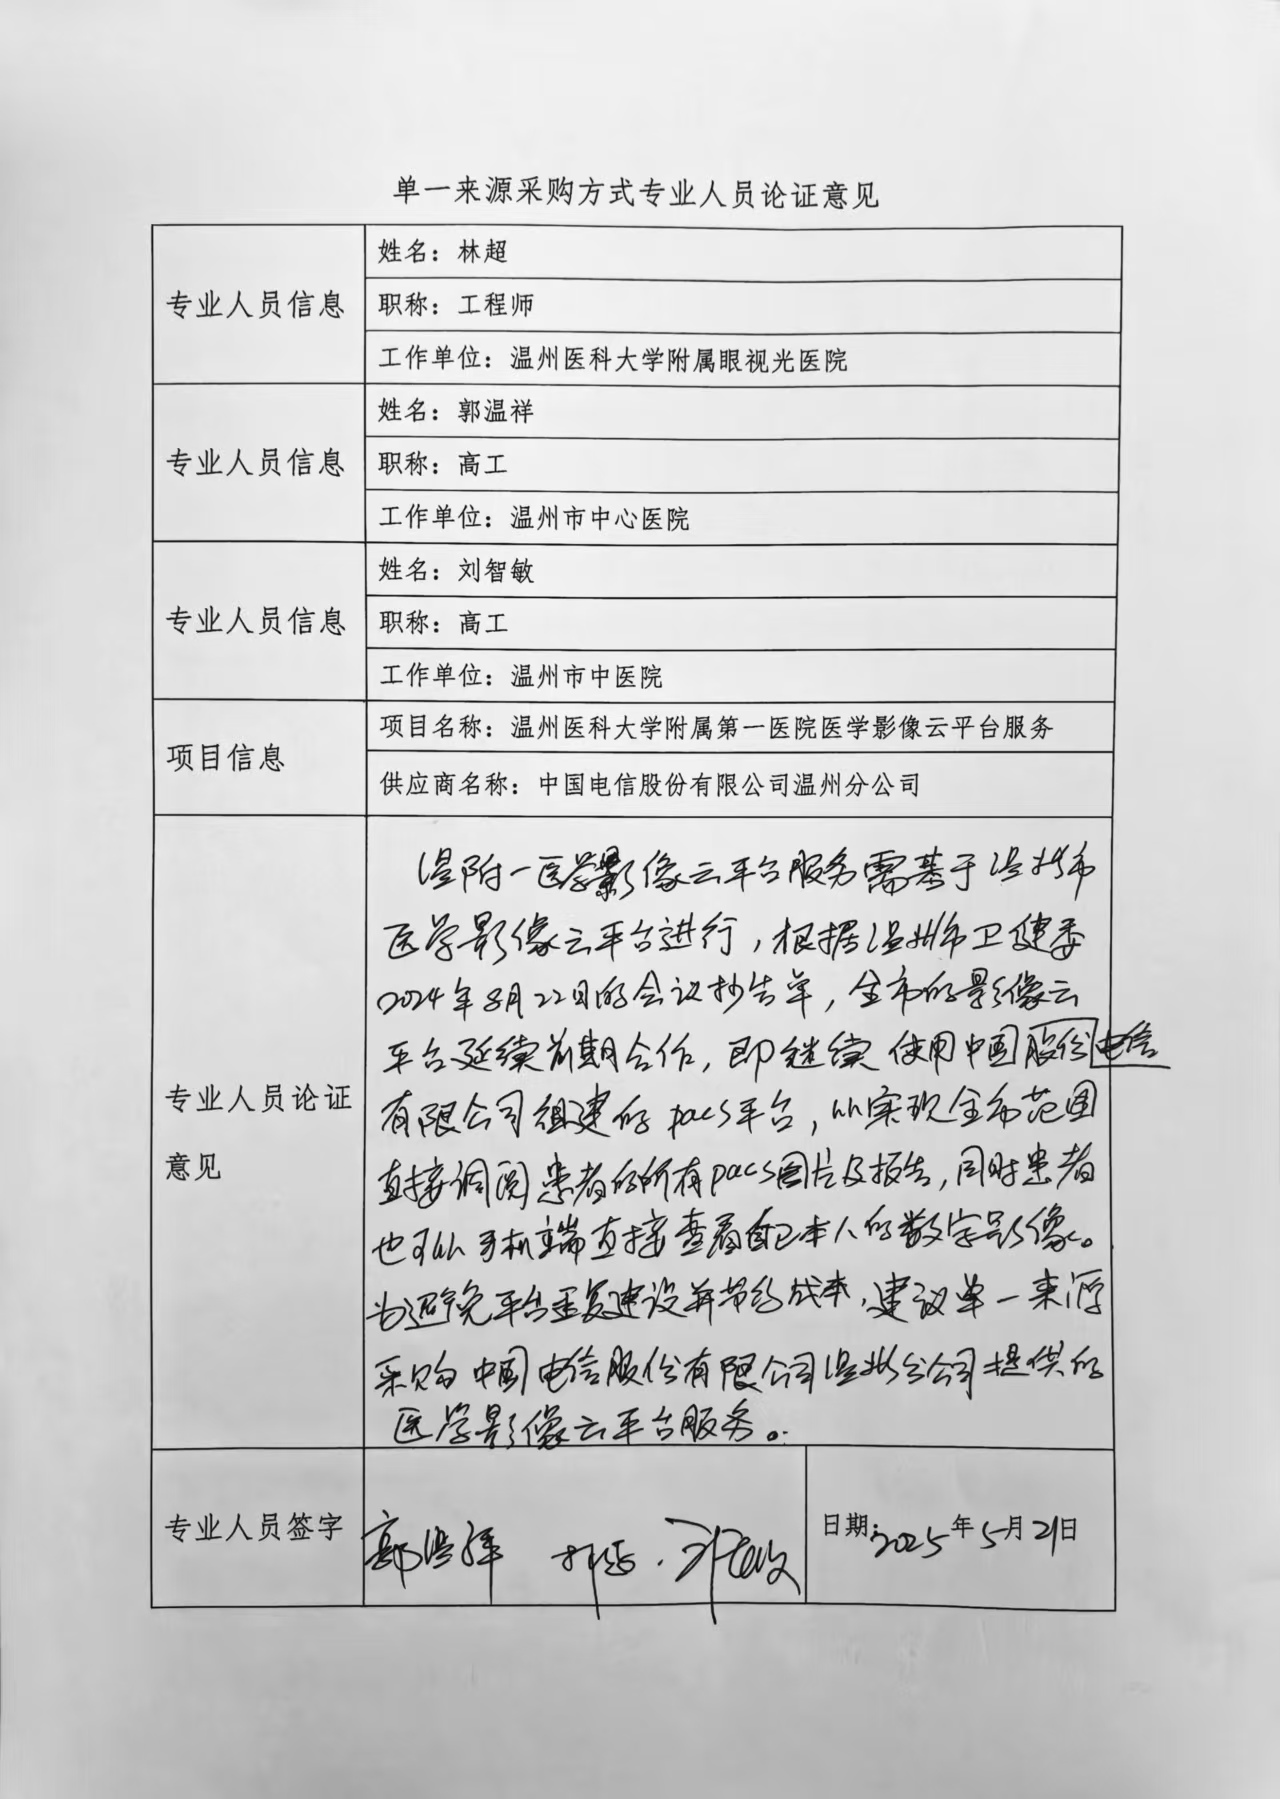 单一来源采购方式专业人员论证意见
专业人员信息
姓名：林超
职称：工程师
工作单位：温州医科大学附属眼视光医院
专业人员信息
姓名：郭温祥
职称：高工
工作单位：温州市中心医院
专业人员信息
姓名：刘智敏
职称：高工
工作单位：温州市中医院
项目信息
项目名称：温州医科大学附属第一医院医学影像云平台服务
供应商名称：中国电信股份有限公司温州分公司
专业人员论证
意见
温附一医学影像云平台服务需基于温州市
医学影像云平台进行，根据温州市卫健委
2024年8月22日的会议抄告单，全市的影像云
平台延续前期合作，即继续使用中国股份电信
有限公司组建的pacs平台，以实现全市范围
直接调阅患者的所有pacs图片及报告，同时患者
也可以手机端直接查看自己本人的数字影像。
为避免平台重复建设并节约成本，建议单一来源
采购中国电信股份有限公司温州分公司提供的
医学影像云平台服务。
专业人员签字
郭温祥 林超 刘智敏
日期：2025年5月21日